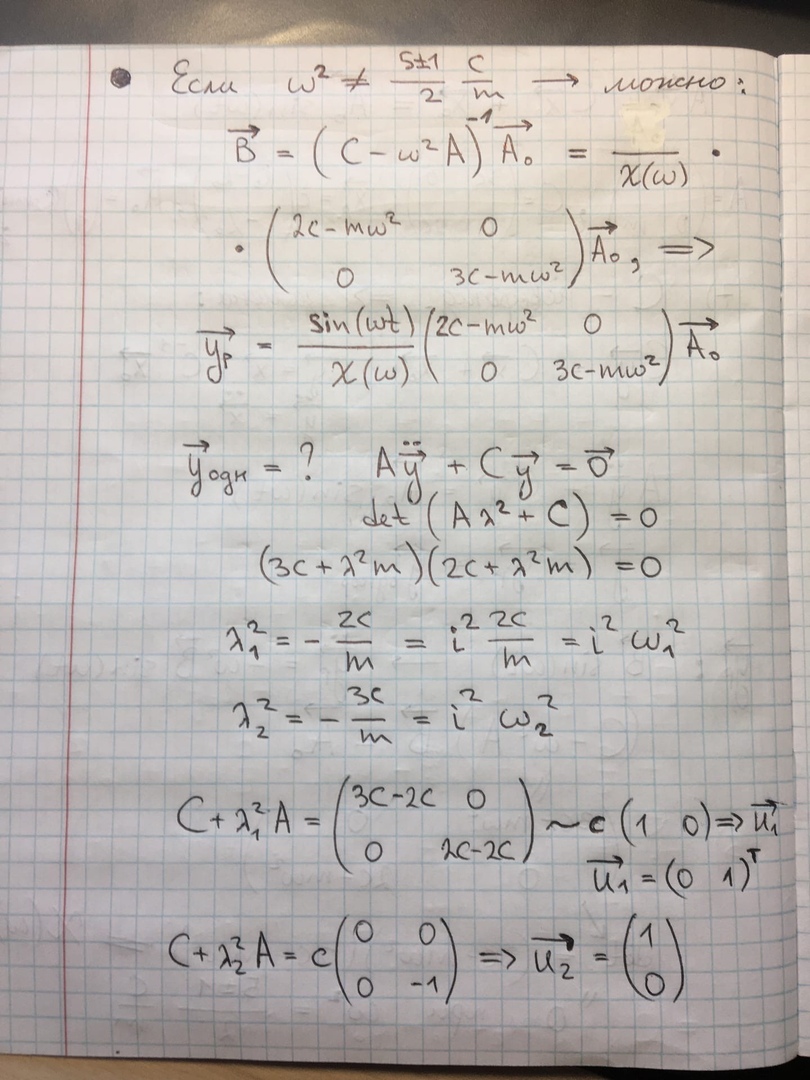 • Если ω² ≠ (5±1)/2 c/m → можно:
B⃗ = (C − ω²A)⁻¹ A⃗₀ = /χ(ω) ·
· (2c−mω² 0
0 3c−mω²) A⃗₀, ⇒
y⃗ₚ = sin(ωt)/χ(ω) (2c−mω² 0
0 3c−mω²) A⃗₀
y⃗одн = ? Aÿ⃗ + Cy⃗ = 0⃗
det (Aλ² + C) = 0
(3c + λ²m)(2c + λ²m) = 0
λ₁² = − 2c/m = i² 2c/m = i² ω₁²
λ₂² = − 3c/m = i² ω₂²
C + λ₁²A = (3c−2c 0
0 2c−2c) ~ c (1 0) ⇒ u⃗₁
u⃗₁ = (0 1)ᵀ
C + λ₂²A = c (0 0
0 −1) ⇒ u⃗₂ = (1
0)